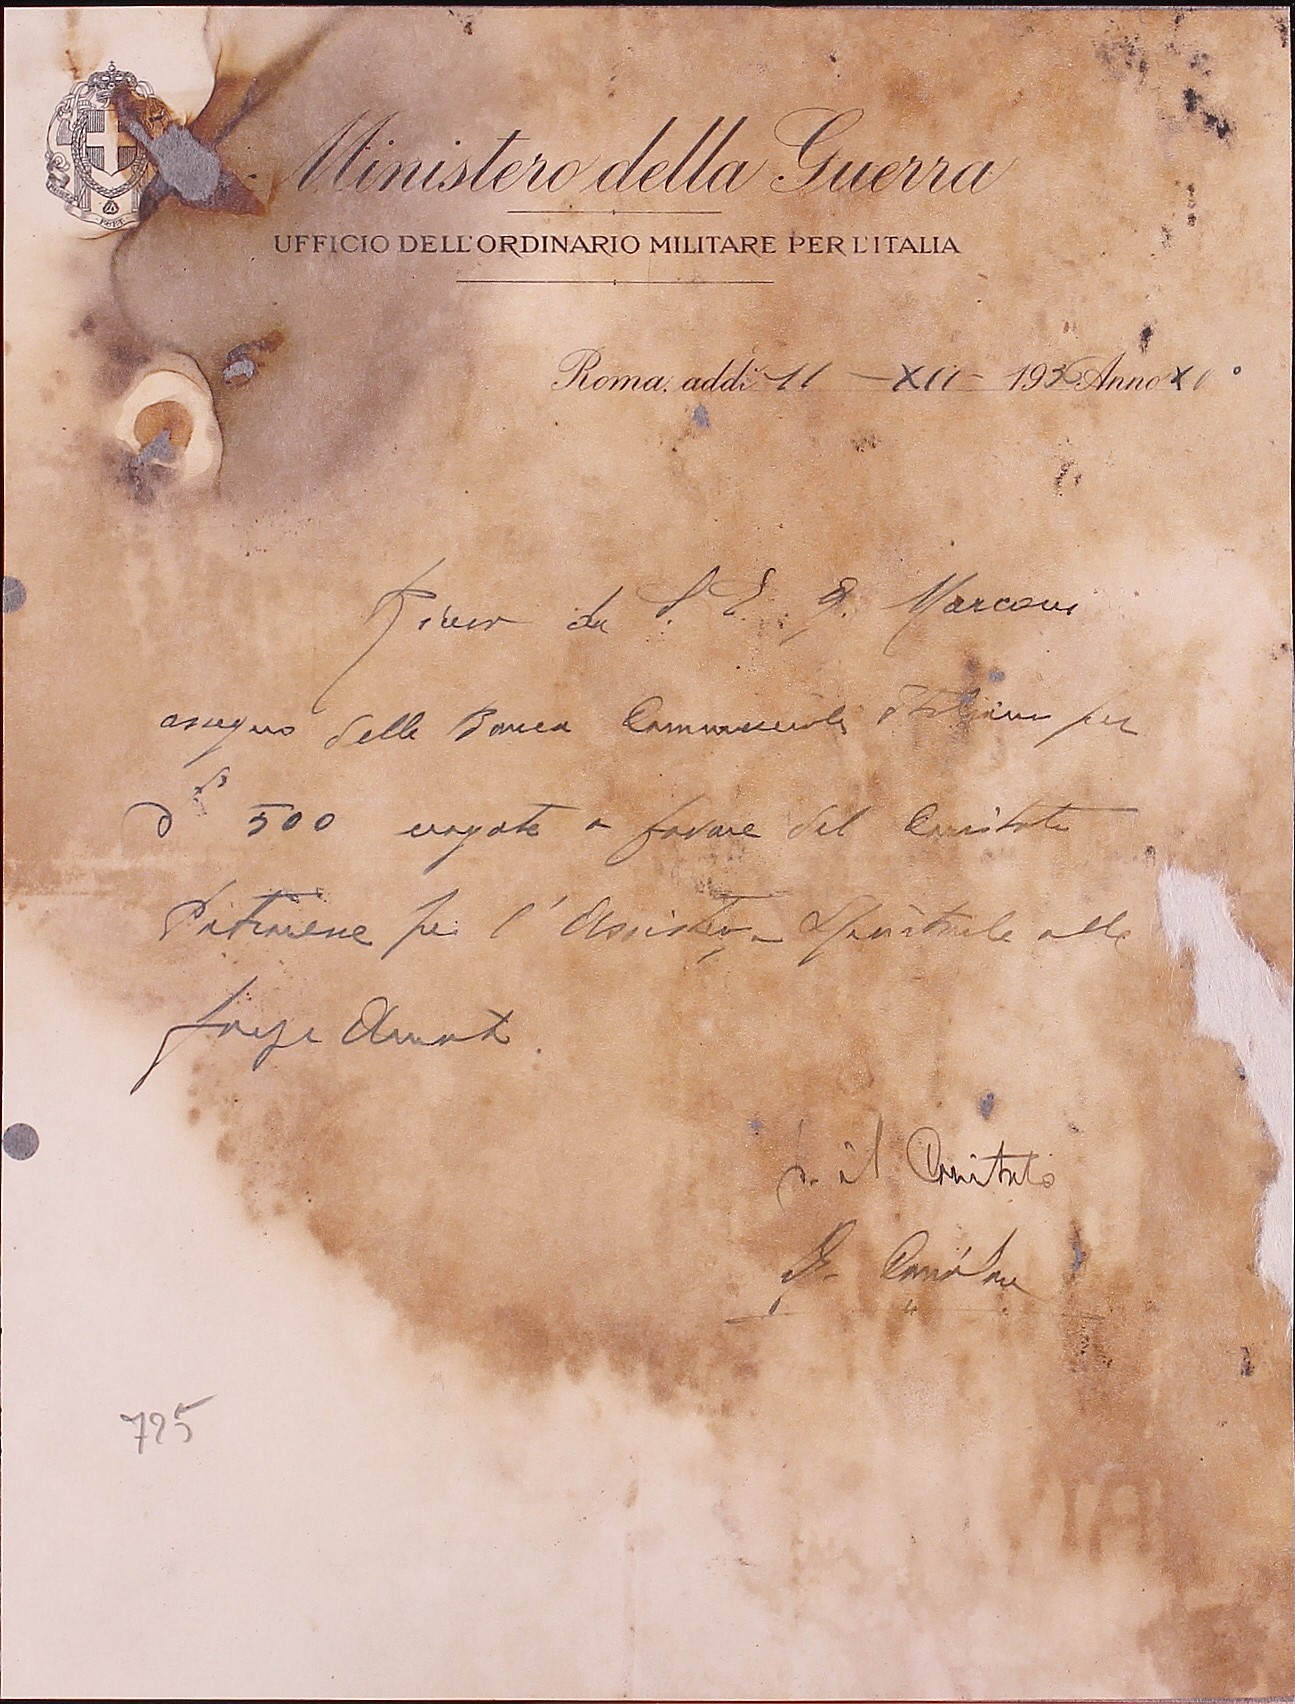 Ministero della Guerra
UFFICIO DELL'ORDINARIO MILITARE PER L'ITALIA
Roma, addì 11 - XII - 193 Anno XI°
da S. E. G. Marconi
assegno della Banca Commerciale Italiana per
500 erogate a favore del Comitato
per l' Spirituale alle
Forze Armate.
p. il Comitato
725